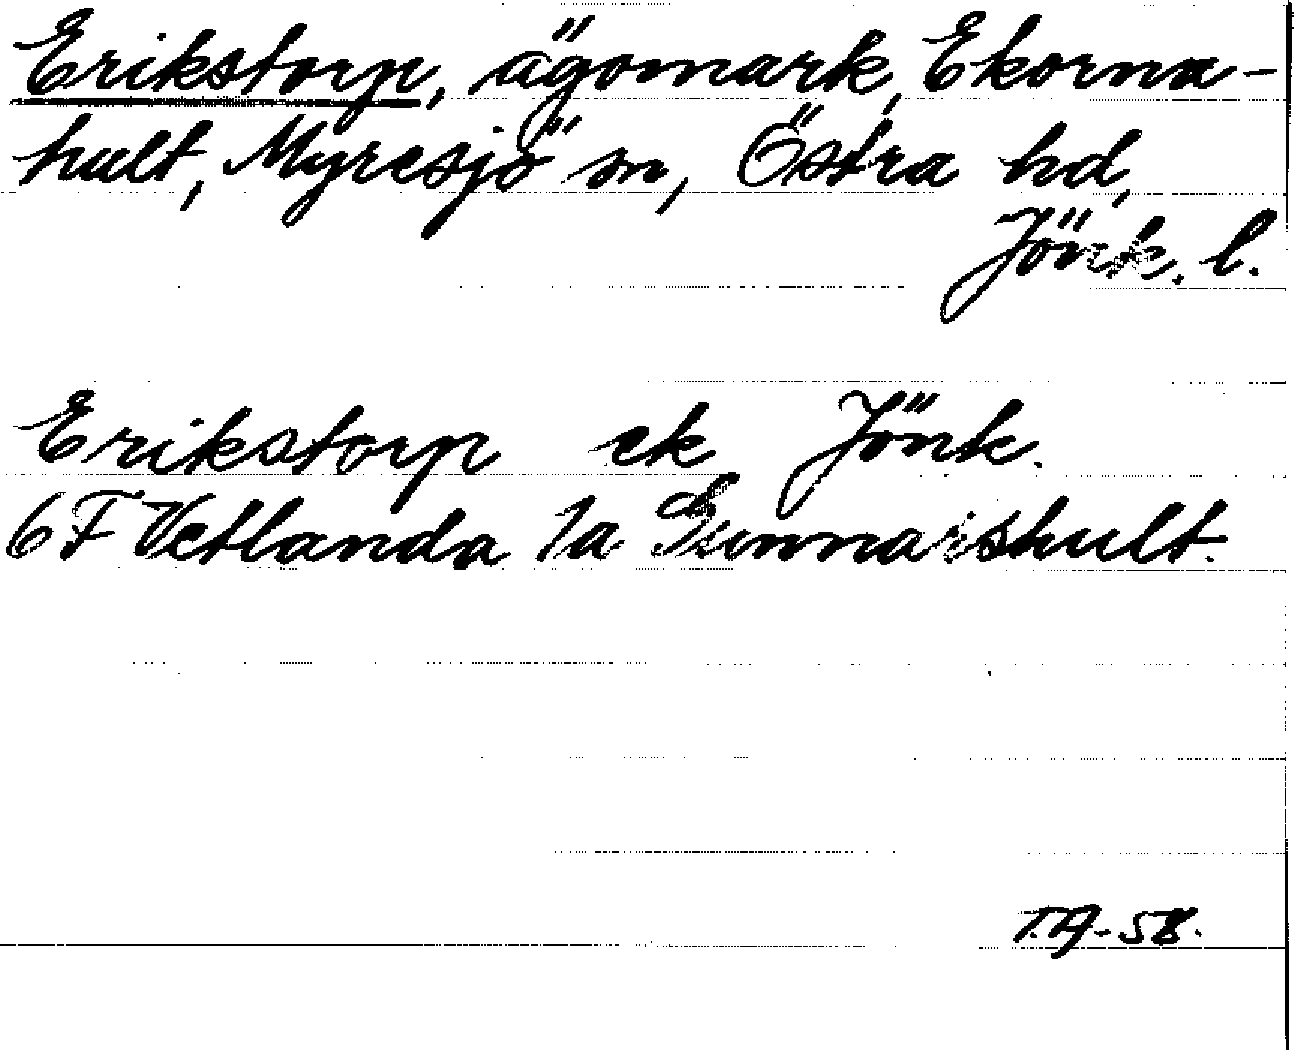 Erikstorp, ägomark, Ekorna-
hult, Myresjö sn, Östra hd,
Jönk. l.
Erikstorp ek Jönk.
6F Vetlanda 1a Gunnarshult.
T.A-58.